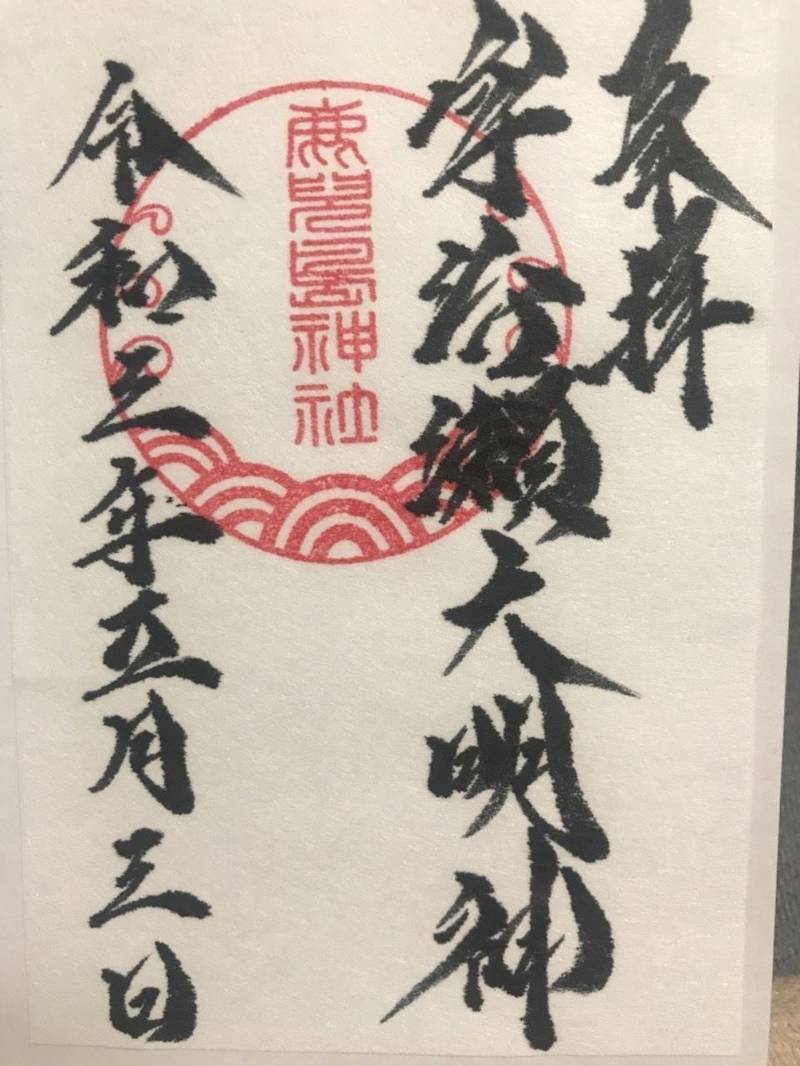 奉拝
宇治瀬大明神
鹿兒島神社
令和三年五月三日